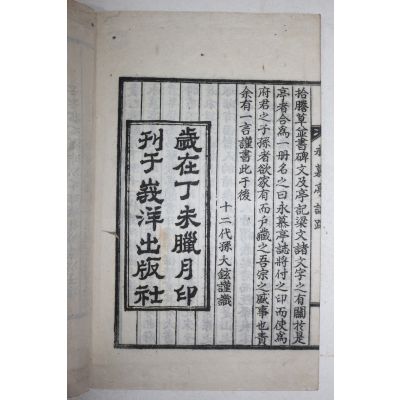 永慕亭誌跋
拾勝草並書碑文及亭記梁文諸文字之有關於是
亭者合爲一冊名之曰永慕亭誌將付之印而使爲
府君之子孫者欲家有而戶藏之吾宗之盛事也責
余有一言謹書此于後
十二代孫大鉉謹識
歲在丁未臘月印
刊于峩洋出版社